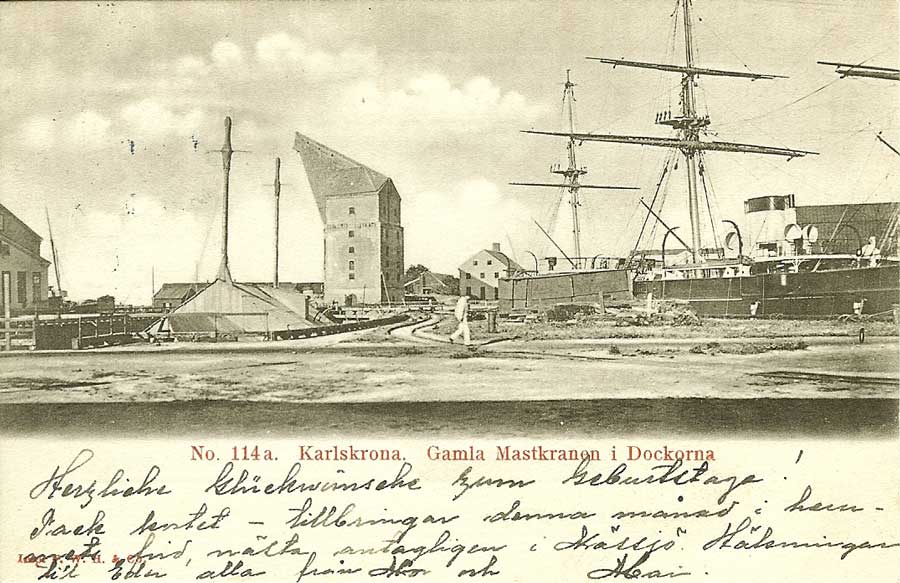 No. 114a. Karlskrona. Gamla Mastkranen i Dockorna
Herzliche Glückwünsche zum Geburtstage!
Tack kortet – tillbringar denna månad i hem-
nästa antagligen i Nässjö. Hälsningar
till Eder alla från Mor och Mai.